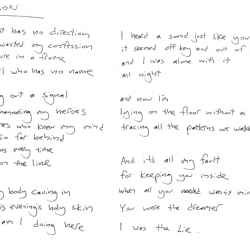 it has no direction
wasted my confession
ure in a frame
l who has no name
ng out a signal
channeling my heroes
es who knew my mind
so far behind
ns every time
on the line
my body caving in
is evening's holy skin
am I doing here
I heard a sound just like you
it seemed off key and out of
and I was alone with it
all night
and now I'm
lying on the floor without a
tracing all the patterns we
And it's all my fault
for keeping you inside
when all you needed was
You were the dreamer
I was the Lie.